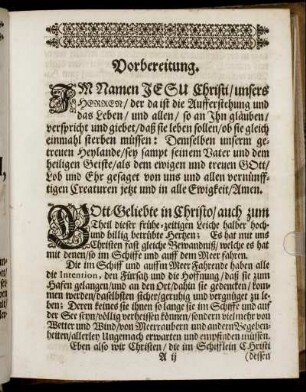 Vorbereitung.
IM Namen JESU Christi/ unsers
HERREN/ der da ist die Aufferstehung und
das Leben/ und allen/ so an Ihn gläuben/
verspricht und giebet/ daß sie leben sollen/ ob sie gleich
einmahl sterben müssen: Demselben unserm ge-
treuen Heylande/ sey sampt seinem Vater und dem
heiligen Geiste/ als dem ewigen und treuen GOtt/
Lob und Ehr gesaget von uns und allen vernünff-
tigen Creaturen jetzt und in alle Ewigkeit/ Amen.
GOtt-Geliebte in Christo/ auch zum
Theil dieser frühe-zeitigen Leiche halber hoch-
und billig betrübte Hertzen: Es hat mit uns
Christen fast gleiche Bewandniß/ welche es hat
mit denen/ so im Schiffe und auff dem Meer fahren.
Die im Schiff und auffm Meer Fahrende haben alle
die Intention, den Fürsatz und die Hoffnung/ daß sie zum
Hafen gelangen/ und an den Ort/ dahin sie gedencken/ kom-
men werden/ daselbsten sicher/ geruhig und vergnüget zu le-
ben: Deren keines sie ihnen so lange sie im Schiffe und auf
der See seyn/ völlig verheissen können/ sondern viel mehr von
Wetter und Wind/ von Meerräubern und andern Begeben-
heiten/ allerley Ungemach erwarten und empfinden müssen.
Eben also wir Christen/ die im Schifflein CHristi
A ij
(dessen